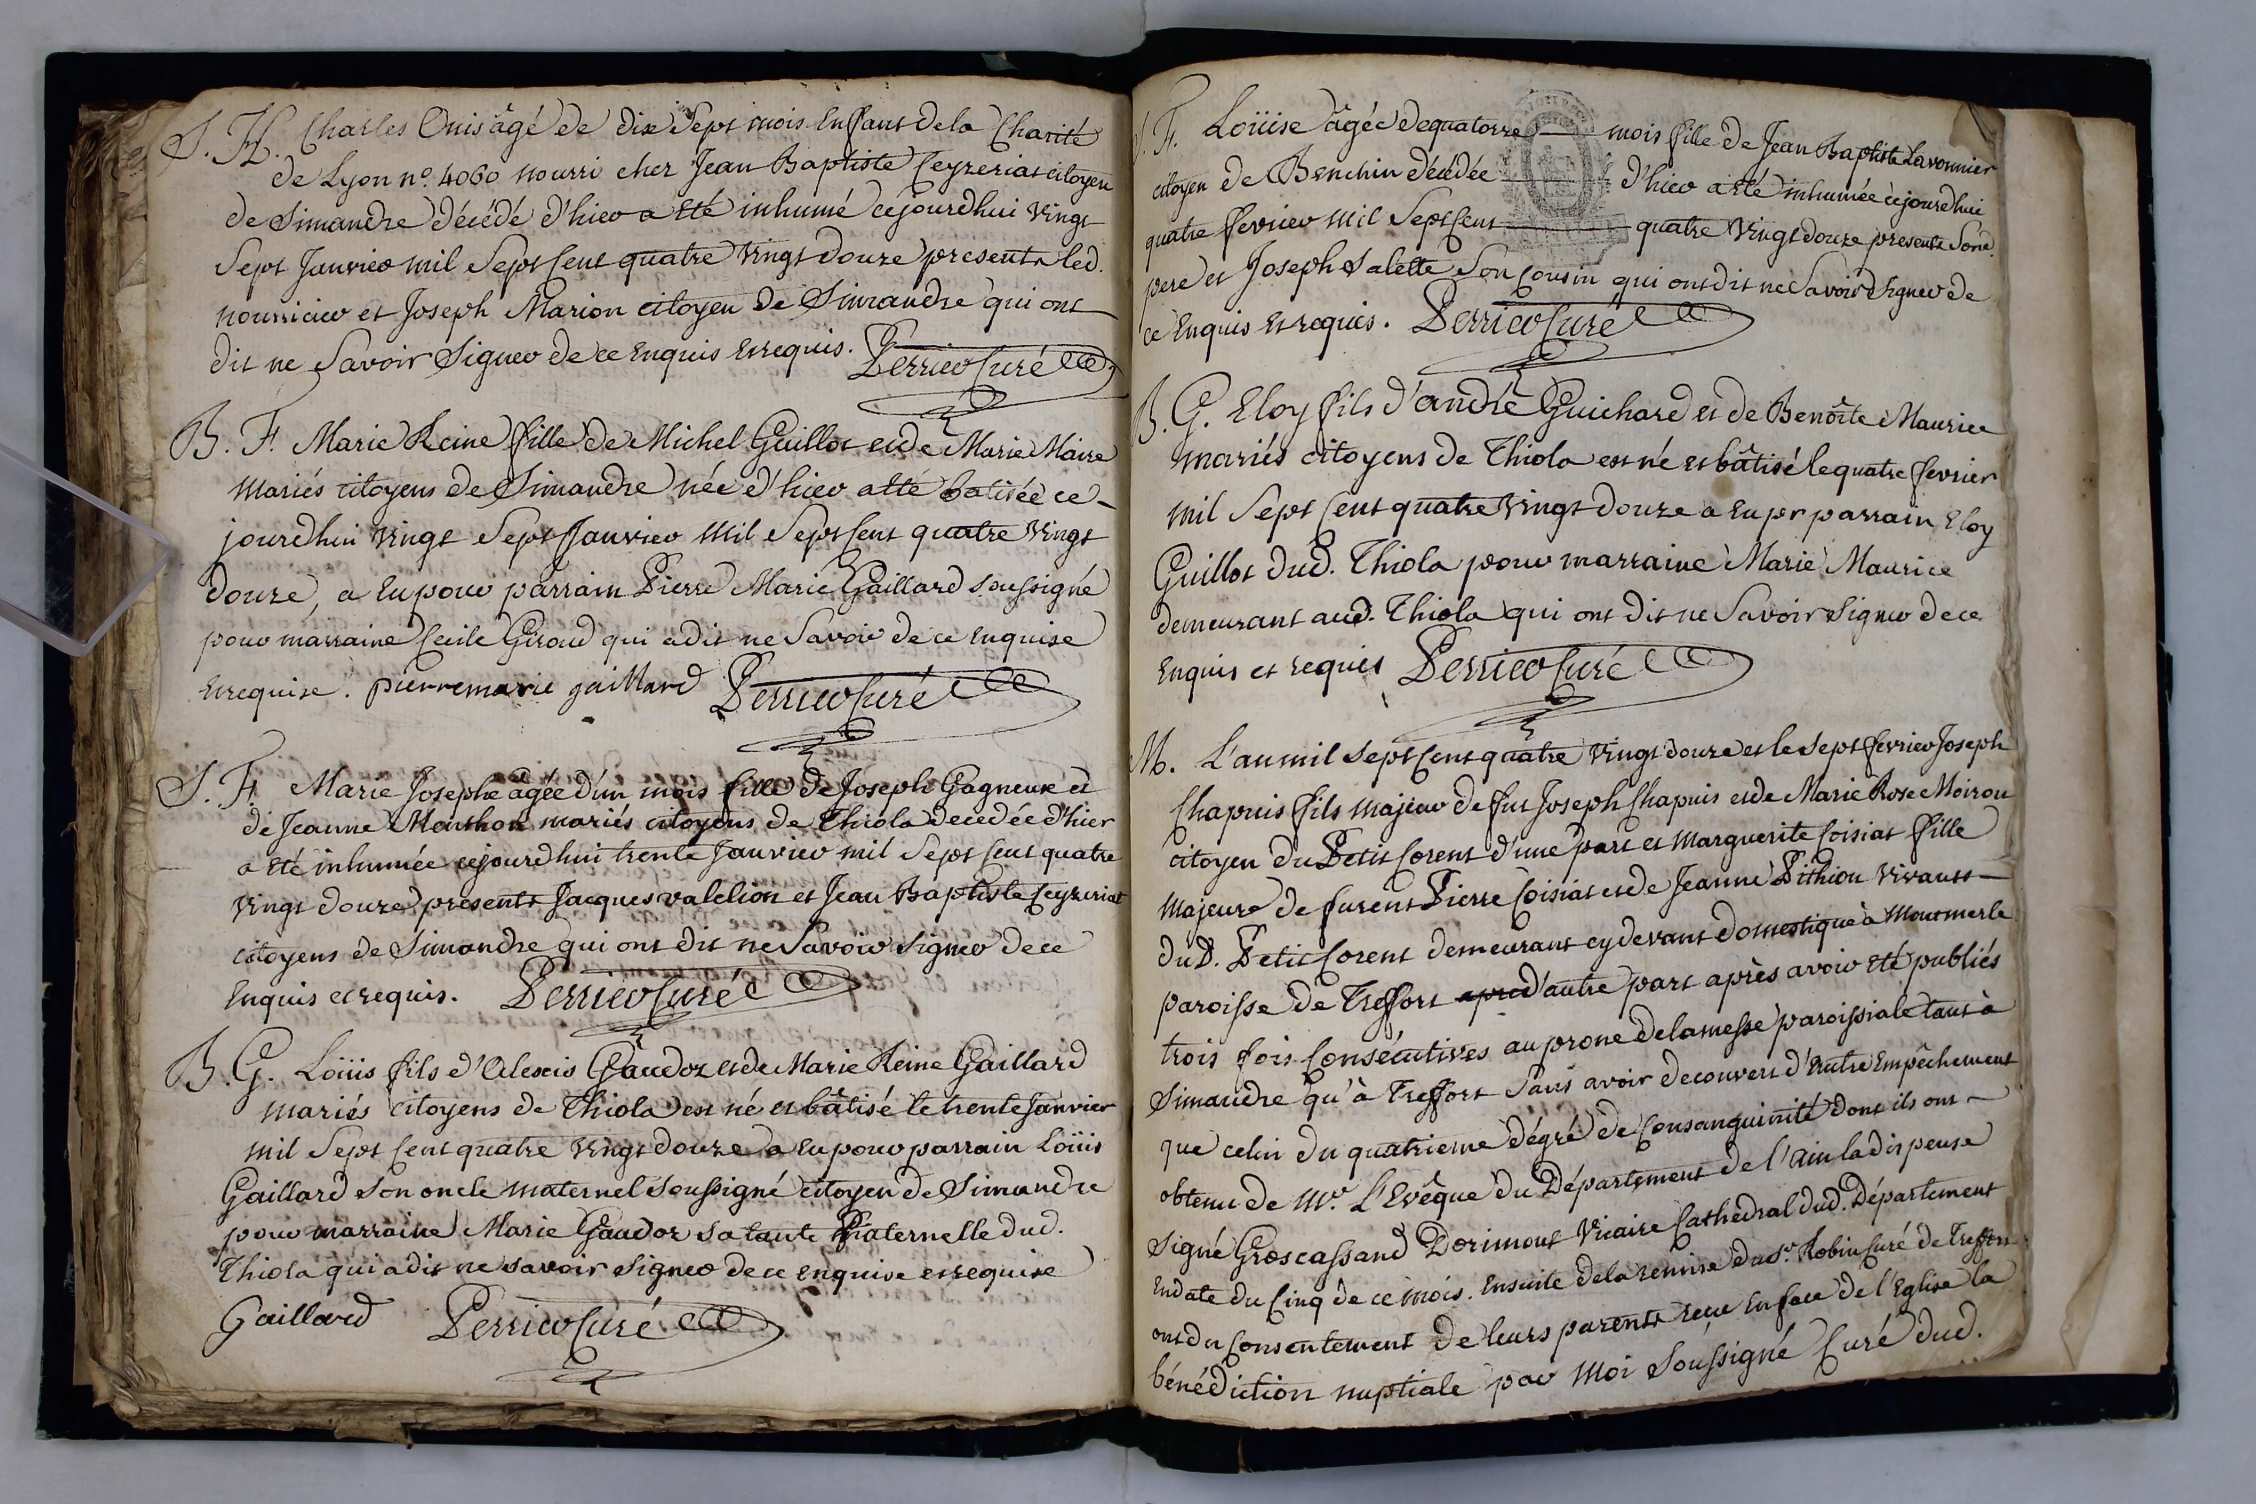 S. H. Charles Onis âgé de dix Sept mois Enfant de la Charité
de Lyon n°. 4060 nourri chez Jean Baptiste Ceyzeriat citoyen
de Simandre décédé d'hier a été inhumé cejourdhui vingt
Sept Janvier mil Sept Cent quatre vingt douze presents led.
nourricier et Joseph Marion citoyen de Simandre qui ont
dit ne Savoir Signer de ce Enquis et requis. Perrier Curé
B. F. Marie Reine fille de Michel Guillot et de Marie Maire
Mariés citoyens de Simandre née d'hier a été batisée ce
jourdhui vingt Sept Janvier mil Sept Cent quatre vingt
douze, a Eu pour parrain Pierre Marie Gaillard soussigné
pour marraine Cecile Giroud qui a dit ne Savoir de ce Enquise
et requise. pierre marie gaillard Perrier Curé
S. F. Marie Josephe âgée d'un mois fille de Joseph Gagneux et
de Jeanne Monthon mariés citoyens de Thiola decedée d'hier
a été inhumée cejourdhui trente Janvier mil Sept Cent quatre
vingt douze presents Jacques valelion et Jean Baptiste Ceyzeriat
citoyens de Simandre qui ont dit ne Savoir Signer de ce
Enquis et requis. Perrier Curé
B. G. Loüis fils d'Alexis Gaudoz et de Marie Reine Gaillard
mariés citoyens de Thiola est né et bâtisé le trente Janvier
mil Sept Cent quatre vingt douze a Eu pour parrain Loüis
Gaillard Son oncle maternel Soussigné citoyen de Simandre
pour marraine Marie Gaudoz Sa tante Paternelle dud.
Thiola qui a dit ne Savoir Signer de ce enquise et requise
Gaillard Perrier Curé
S. F. Loüise âgée de quatorze mois fille de Jean Baptiste Lavonnier
citoyen de Benchin décédée d'hier a été inhumée cejourdhui
quatre fevrier mil Sept Cent quatre vingt douze presents Sond.
pere et Joseph Salette Son Cousin qui ont dit ne Savoir Signer de
ce Enquis et requis. Perrier Curé
B. G. Eloy fils d'andré Guichard et de Benoîte Maurice
mariés citoyens de Thiola est né et bâtisé le quatre fevrier
mil Sept Cent quatre vingt douze a Eu pr parrain Eloy
Guillot dud. Thiola pour marraine Marie Maurice
demeurant aud. Thiola qui ont dit ne Savoir Signer de ce
Enquis et requis Perrier Curé
M. L'an mil Sept Cent quatre vingt douze et le Sept fevrier Joseph
Chapuis fils majeur de fut Joseph Chapuis et de Marie Rose Moiron
citoyen du Petit Corent d'une part et Marguerite Coisiat fille
Majeure de furent Pierre Coisiat et de Jeanne Pithiou vivants
du D. Petit Corent demeurant cy devant domestique à Montmerle
paroisse de Treffort d'autre part après avoir été publiés
trois fois Consécutives au prone de la messe paroissiale tant à
Simandre qu'à Treffort Sans avoir decouvert d'autre Empêchement
que celui du quatrieme dégré de Consanguinité dont ils ont
obtenu de Mr. L'Evêque du Département de l'ain la dispense
Signé Groscassand Dorimont Vicaire Cathédral dud. Département
En date du Cinq de ce mois. Ensuite de la remise du Sr. Robin Curé de Treffort
ont du Consentement de leurs parents reçu En face de l'Eglise la
bénédiction nuptiale par moi Soussigné Curé dud.